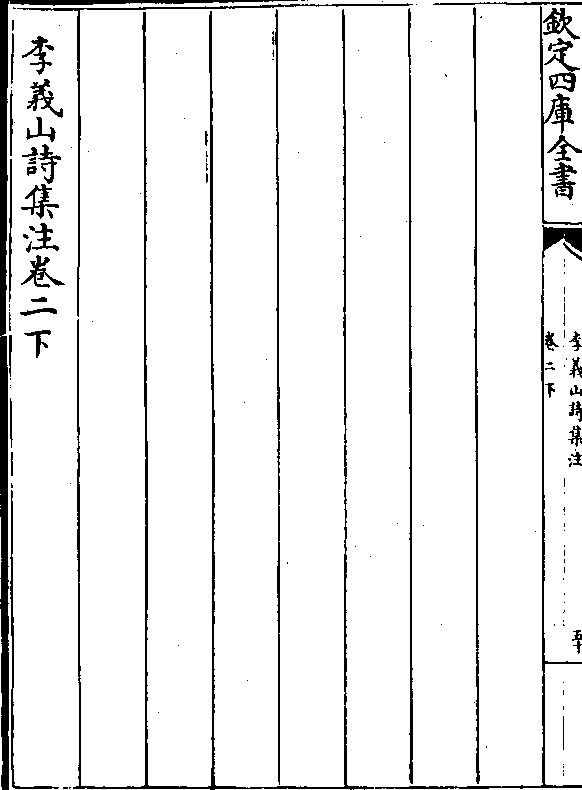 欽定四庫全書
李義山詩集注
卷二下
五十
李義山詩集注卷二下